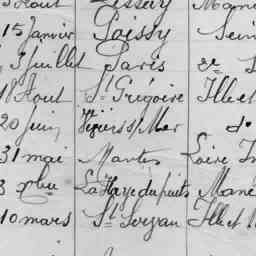 15 Janvier Poissy Sein
3 Juillet Paris
11 Aout St Grégoire Ille et
20 Juin s/Mer do
31 mai Nantes Loire In
8 xbre La Haye du puits Manc
10 mars St Servan Ille et